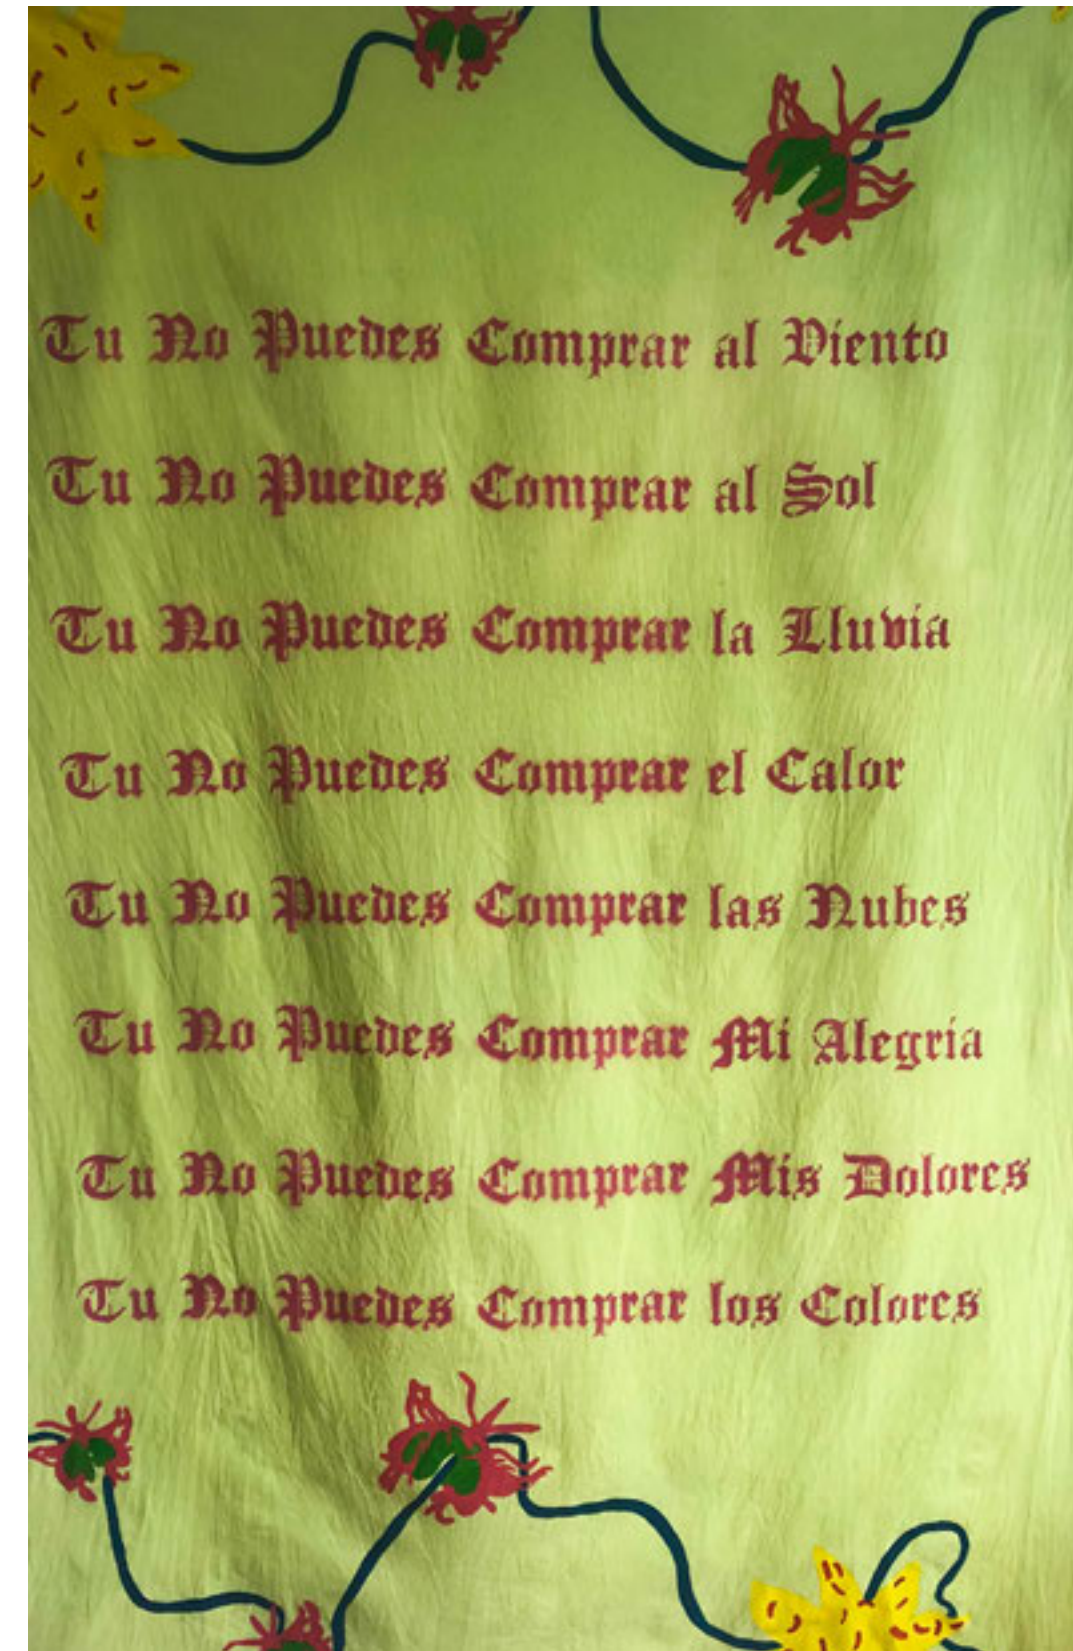 Tu No Puedes Comprar al Viento
Tu No Puedes Comprar al Sol
Tu No Puedes Comprar la Lluvia
Tu No Puedes Comprar el Calor
Tu No Puedes Comprar las Nubes
Tu No Puedes Comprar Mi Alegria
Tu No Puedes Comprar Mis Dolores
Tu No Puedes Comprar los Colores